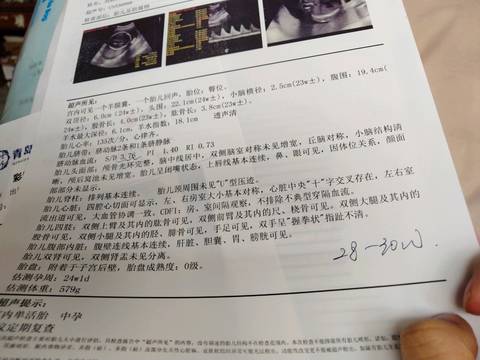 超声所见:
宫内可见一个羊膜囊,一个胎儿回声,胎位:臀位。
双顶径:6.0cm(24w±),头围:22.1cm(24w±),小脑横径:2.5cm(23w±),腹围:19.4cm(
24w±),股骨长:4.0cm(23w±),肱骨长:3.8cm(23w±)。
羊水最大深径:6.1cm,羊水指数:18.1cm 透声清
胎儿心率:135次/分,心律齐。
胎儿脐带:脐动脉2条和1条脐静脉
脐动脉血流:S/D 3.76 PI 1.40 RI 0.73
胎儿头面部:颅骨光环完整,脑中线居中,双侧脑室对称未见增宽,丘脑对称,小脑结构清
晰,颅后窝池未见增宽。胎儿呈闭嘴状态,上唇线基本连续,鼻、眼可见,因体位关系,颜面
部部分未显示。
胎儿脊柱:排列基本连续。 胎儿颈周围未见"U"型压迹。
胎儿心脏:四腔心切面可显示,左、右房室大小基本对称,心脏中央"十"字交叉存在,左右室
流出道可见,大血管协调一致。CDFI:房、室间隔观察,不排除不典型穿隔血流。
胎儿四肢:双侧上臂及其内的肱骨可见,双侧前臂及其内的尺、桡骨可见。双侧大腿及其内的
股骨可见,双侧小腿及其内的胫、腓骨可见,手足可见,双手呈"器拳状"指趾不清。
胎儿腹部内脏:腹壁连续基本连续,肝脏、胆囊、胃、膀胱可见。
胎儿双肾可见,双侧肾盂未见分离。
胎盘:附着于子宫后壁,胎盘成熟度:0级。
估测孕周:24w1d
估测体重:579g
28-30W
超声提示:
宫内单活胎 中孕
议定期复查
青岛